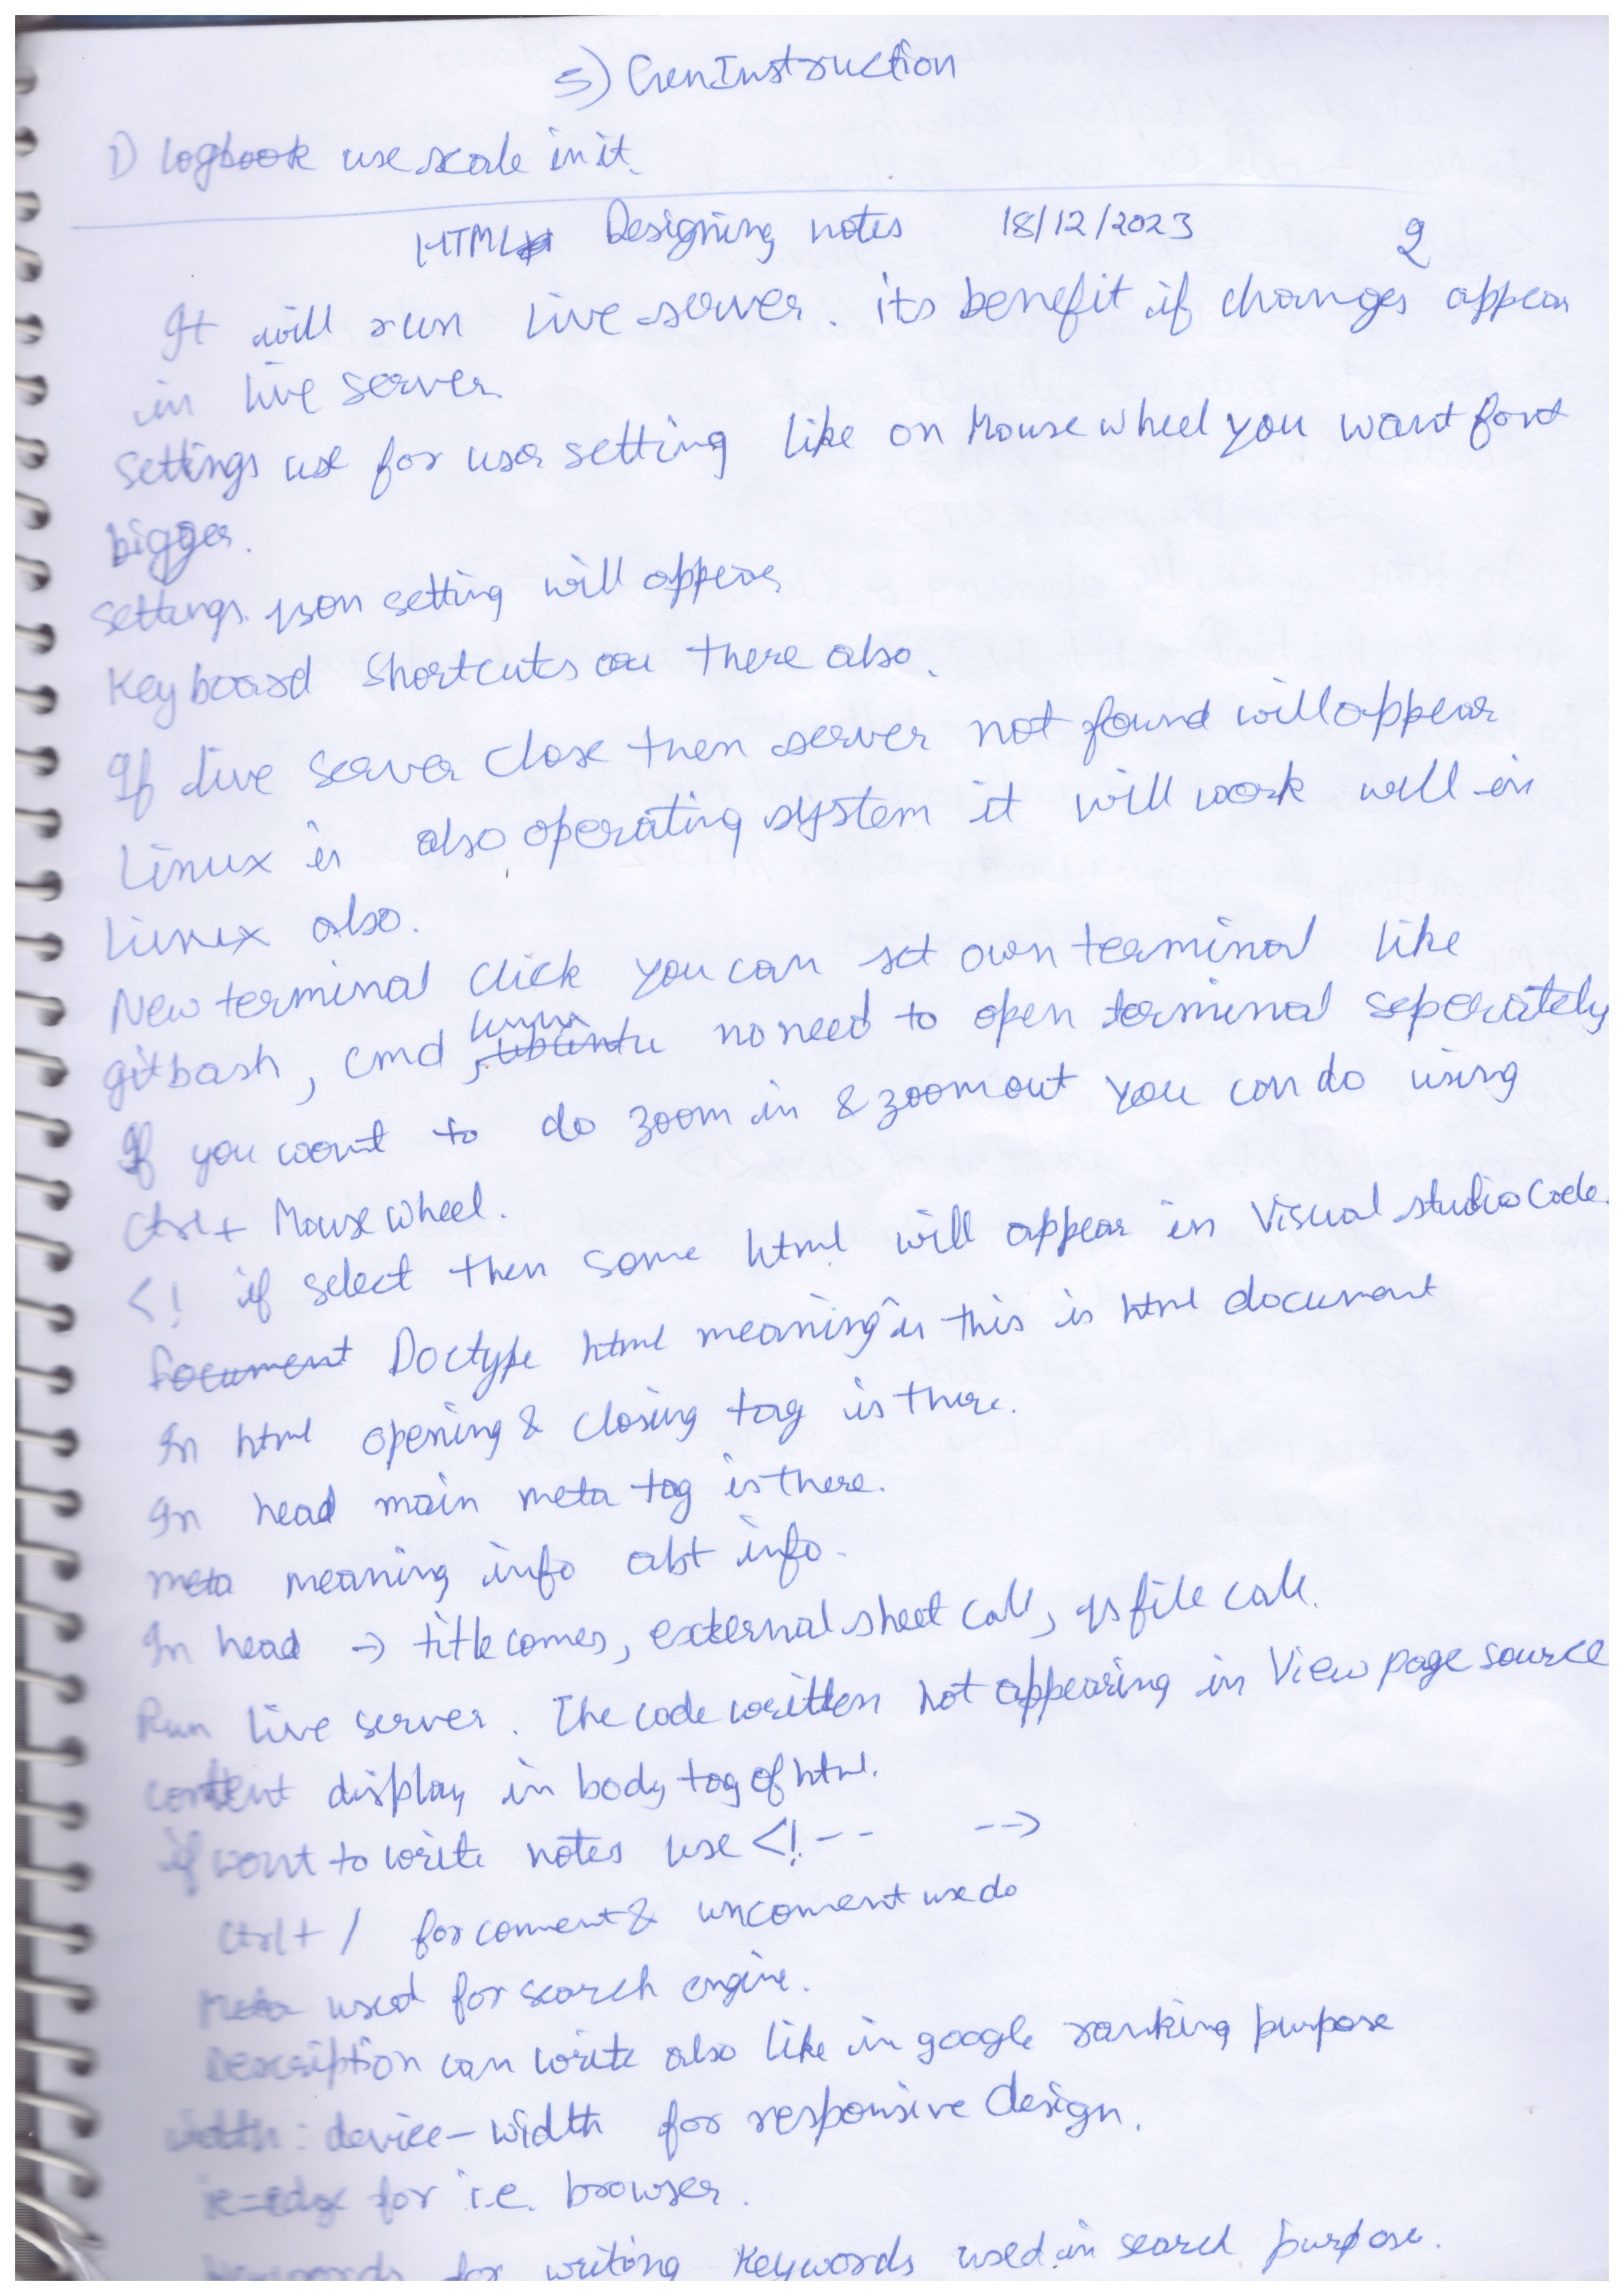 5) GenInstruction
1) logbook use scale in it.
HTML Designing notes 18/12/2023 2
It will run live server. its benefit if changes appear
in live server.
Settings use for user setting like on Mouse wheel you want font
bigger.
settings. json setting will appear
Keyboard Shortcuts are there also.
If live server close then server not found will appear
Linux is also operating system it will work well in
Linux also.
New terminal click you can set own terminal like
gitbash, cmd, linux no need to open terminal seperately
If you want to do zoom in & zoom out you can do using
Ctrl+ Mouse wheel.
<! if select then some html will appear in Visual studio Code.
Document Doctype html meaning is this is html document
In html opening & closing tag is there.
In head main meta tag is there.
meta meaning info abt info.
In head → title comes, external sheet call, js file call.
Run live server. The code written not appearing in View page source
content display in body tag of html.
if want to write notes use <!-- -->
Ctrl+ / for coment & uncoment use do
Meta used for search engine.
Description can write also like in google ranking purpose
width: device-width for responsive design.
ie=edge for i.e. browser.
keywords for writing keywords used in search purpose.